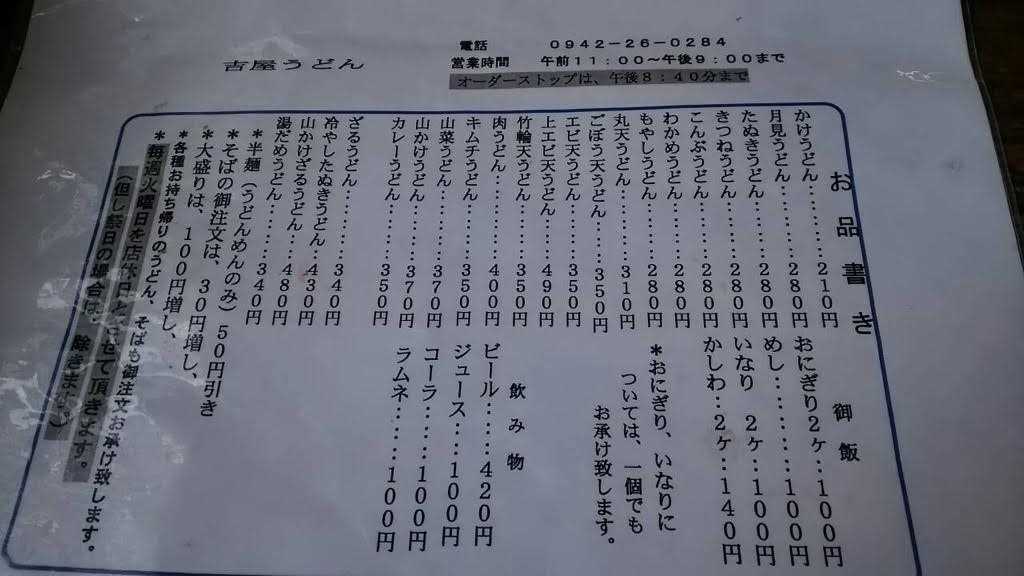 吉屋うどん
電話　0942-26-0284
営業時間　午前11:00〜午後9:00まで
オーダーストップは、午後8:40分まで
お品書き
かけうどん………210円
月見うどん………280円
たぬきうどん………280円
きつねうどん………280円
こんぶうどん………280円
わかめうどん………280円
もやしうどん………280円
丸天うどん………310円
ごぼう天うどん……350円
エビ天うどん………350円
上エビ天うどん……490円
竹輪天うどん………350円
肉うどん………400円
キムチうどん………350円
山菜うどん………370円
山かけうどん………370円
カレーうどん………350円
ざるうどん………340円
冷やしたぬきうどん…430円
山かけざるうどん……480円
湯だめうどん………340円
*半麺（うどんめんのみ）50円引き
*そばの御注文は、30円増し、
*大盛りは、100円増し、
*各種お持ち帰りのうどん、そばも御注文お承け致します。
*毎週火曜日を店休日とさせて頂きます。
（但し祭日の場合は、除きます。）
御飯
おにぎり2ヶ‥100円
めし………100円
いなり　2ヶ‥100円
かしわ‥2ヶ‥140円
*おにぎり、いなりに
ついては、一個でも
お承け致します。
飲み物
ビール……420円
ジュース……100円
コーラ……100円
ラムネ……100円